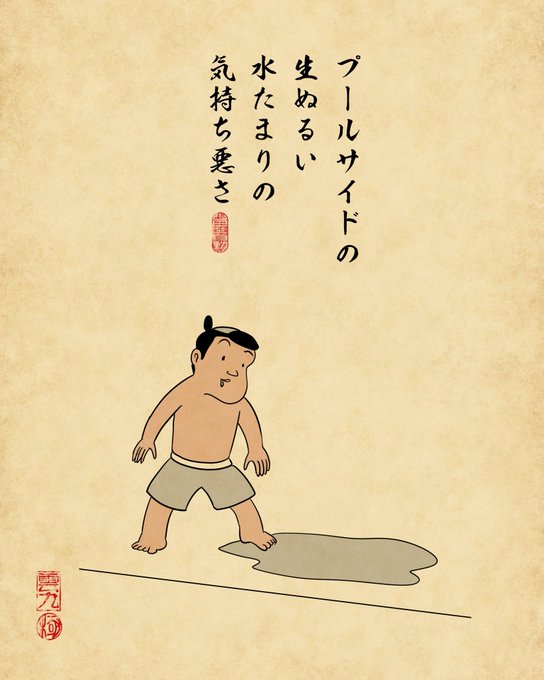 プールサイドの
生ぬるい
水たまりの
気持ち悪さ